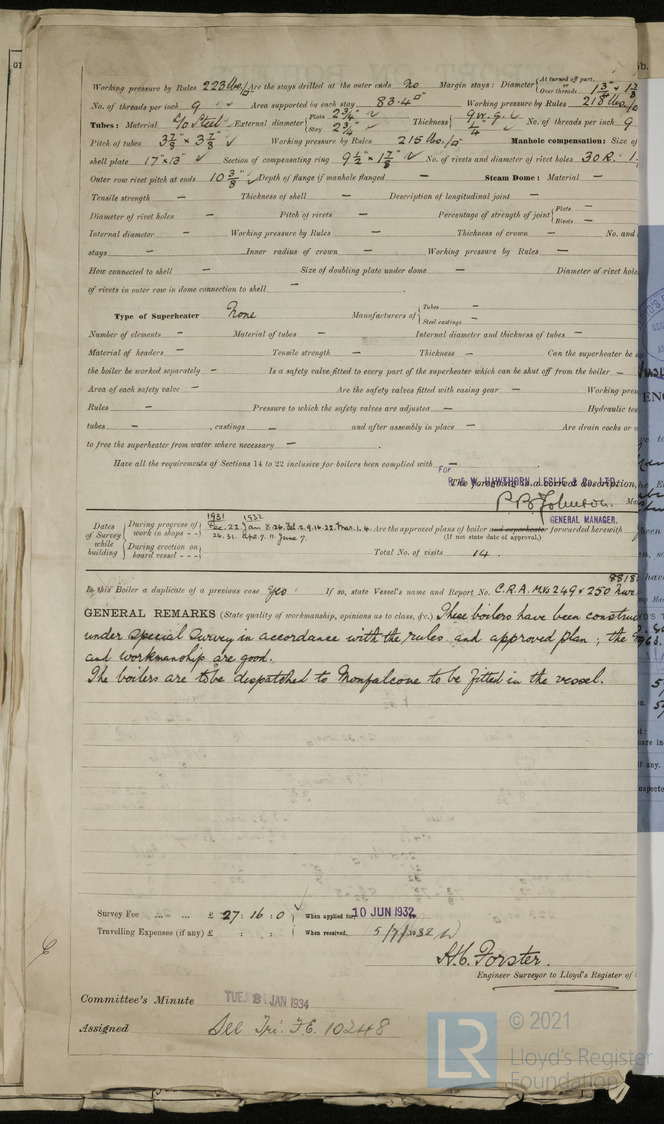 Working pressure by Rules 223 lbs/□" Are the stays drilled at the outer ends No Margin stays: Diameter { At turned off part, or Over threads 1 3/4"
No. of threads per inch 9 Area supported by each stay 83.4 □" Working pressure by Rules 218 lbs/□
Tubes: Material S/D Steel External diameter { Plain 2 3/4" Stay 2 3/4" Thickness { 9 w.g. 1/4" No. of threads per inch 9
Pitch of tubes 3 7/8" × 3 7/8" Working pressure by Rules 215 lbs/□" Manhole compensation: Size of
shell plate 17" × 13" Section of compensating ring 9 1/2" × 1 7/8" No. of rivets and diameter of rivet holes 30 R. 1
Outer row rivet pitch at ends 10 3/8" Depth of flange if manhole flanged — Steam Dome: Material —
Tensile strength — Thickness of shell — Description of longitudinal joint —
Diameter of rivet holes — Pitch of rivets — Percentage of strength of joint { Plate — Rivets —
Internal diameter — Working pressure by Rules — Thickness of crown — No. and
stays — Inner radius of crown — Working pressure by Rules —
How connected to shell — Size of doubling plate under dome — Diameter of rivet hole
of rivets in outer row in dome connection to shell —
Type of Superheater None Manufacturers of { Tubes — Steel castings —
Number of elements — Material of tubes — Internal diameter and thickness of tubes —
Material of headers — Tensile strength — Thickness — Can the superheater be
the boiler be worked separately — Is a safety valve fitted to every part of the superheater which can be shut off from the boiler —
Area of each safety valve — Are the safety valves fitted with easing gear — Working pres
Rules — Pressure to which the safety valves are adjusted — Hydraulic te
tubes —, castings — and after assembly in place — Are drain cocks or
to free the superheater from water where necessary —
Have all the requirements of Sections 14 to 22 inclusive for boilers been complied with —
For
R. & W. HAWTHORN, LESLIE & Co., LTD.
The foregoing is a correct description,
P. B. Johnson. Ma
GENERAL MANAGER.
Dates of Survey while building { During progress of work in shops - - 1931 Dec. 22. 1932 Jan 8. 26. Feb. 2. 9. 16. 22. Mar. 1. 4. 24. 31. Apr. 7. 11. June 7. Are the approved plans of boiler and superheater forwarded herewith
(If not state date of approval.)
During erection on board vessel - - - Total No. of visits 14.
Is this Boiler a duplicate of a previous case Yes If so, state Vessel's name and Report No. C.R.A. Nos 249 & 250
GENERAL REMARKS (State quality of workmanship, opinions as to class, &c.) These boilers have been construc
under Special Survey in accordance with the rules and approved plan; the
and workmanship are good.
The boilers are to be dispatched to Monfalcone to be fitted in the vessel.
Survey Fee ... ... £ 27 : 16 : 0 When applied for, 10 JUN 1932
Travelling Expenses (if any) £ : : When received, 5/7/1932
H.C. Forster.
Engineer Surveyor to Lloyd's Register of
Committee's Minute TUE. 2 JAN 1934
Assigned See Tri. F.E. 10248
LR © 2021
Lloyd's Register
Foundation